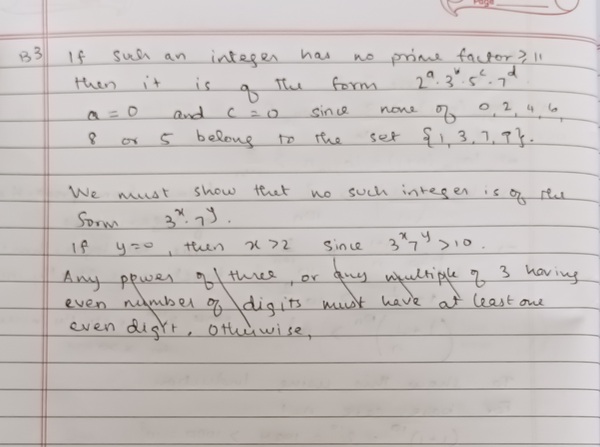 Page
B3 If such an integer has no prime factor ≥ 11
then it is of the form 2^a · 3^b · 5^c · 7^d
a = 0 and c = 0 since none of 0, 2, 4, 6,
8 or 5 belong to the set {1, 3, 7, 9}.
We must show that no such integer is of the
form 3^x · 7^y.
If y=0, then x>2 since 3^x 7^y > 10.
Any power of three, or any multiple of 3 having
even number of digits must have at least one
even digit. Otherwise,